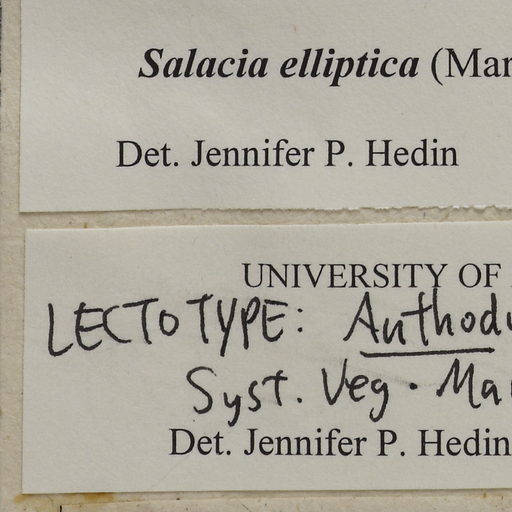 Salacia elliptica (Mar
Det. Jennifer P. Hedin
UNIVERSITY OF
LECTOTYPE: Anthod
Syst. Veg. Ma
Det. Jennifer P. Hedin